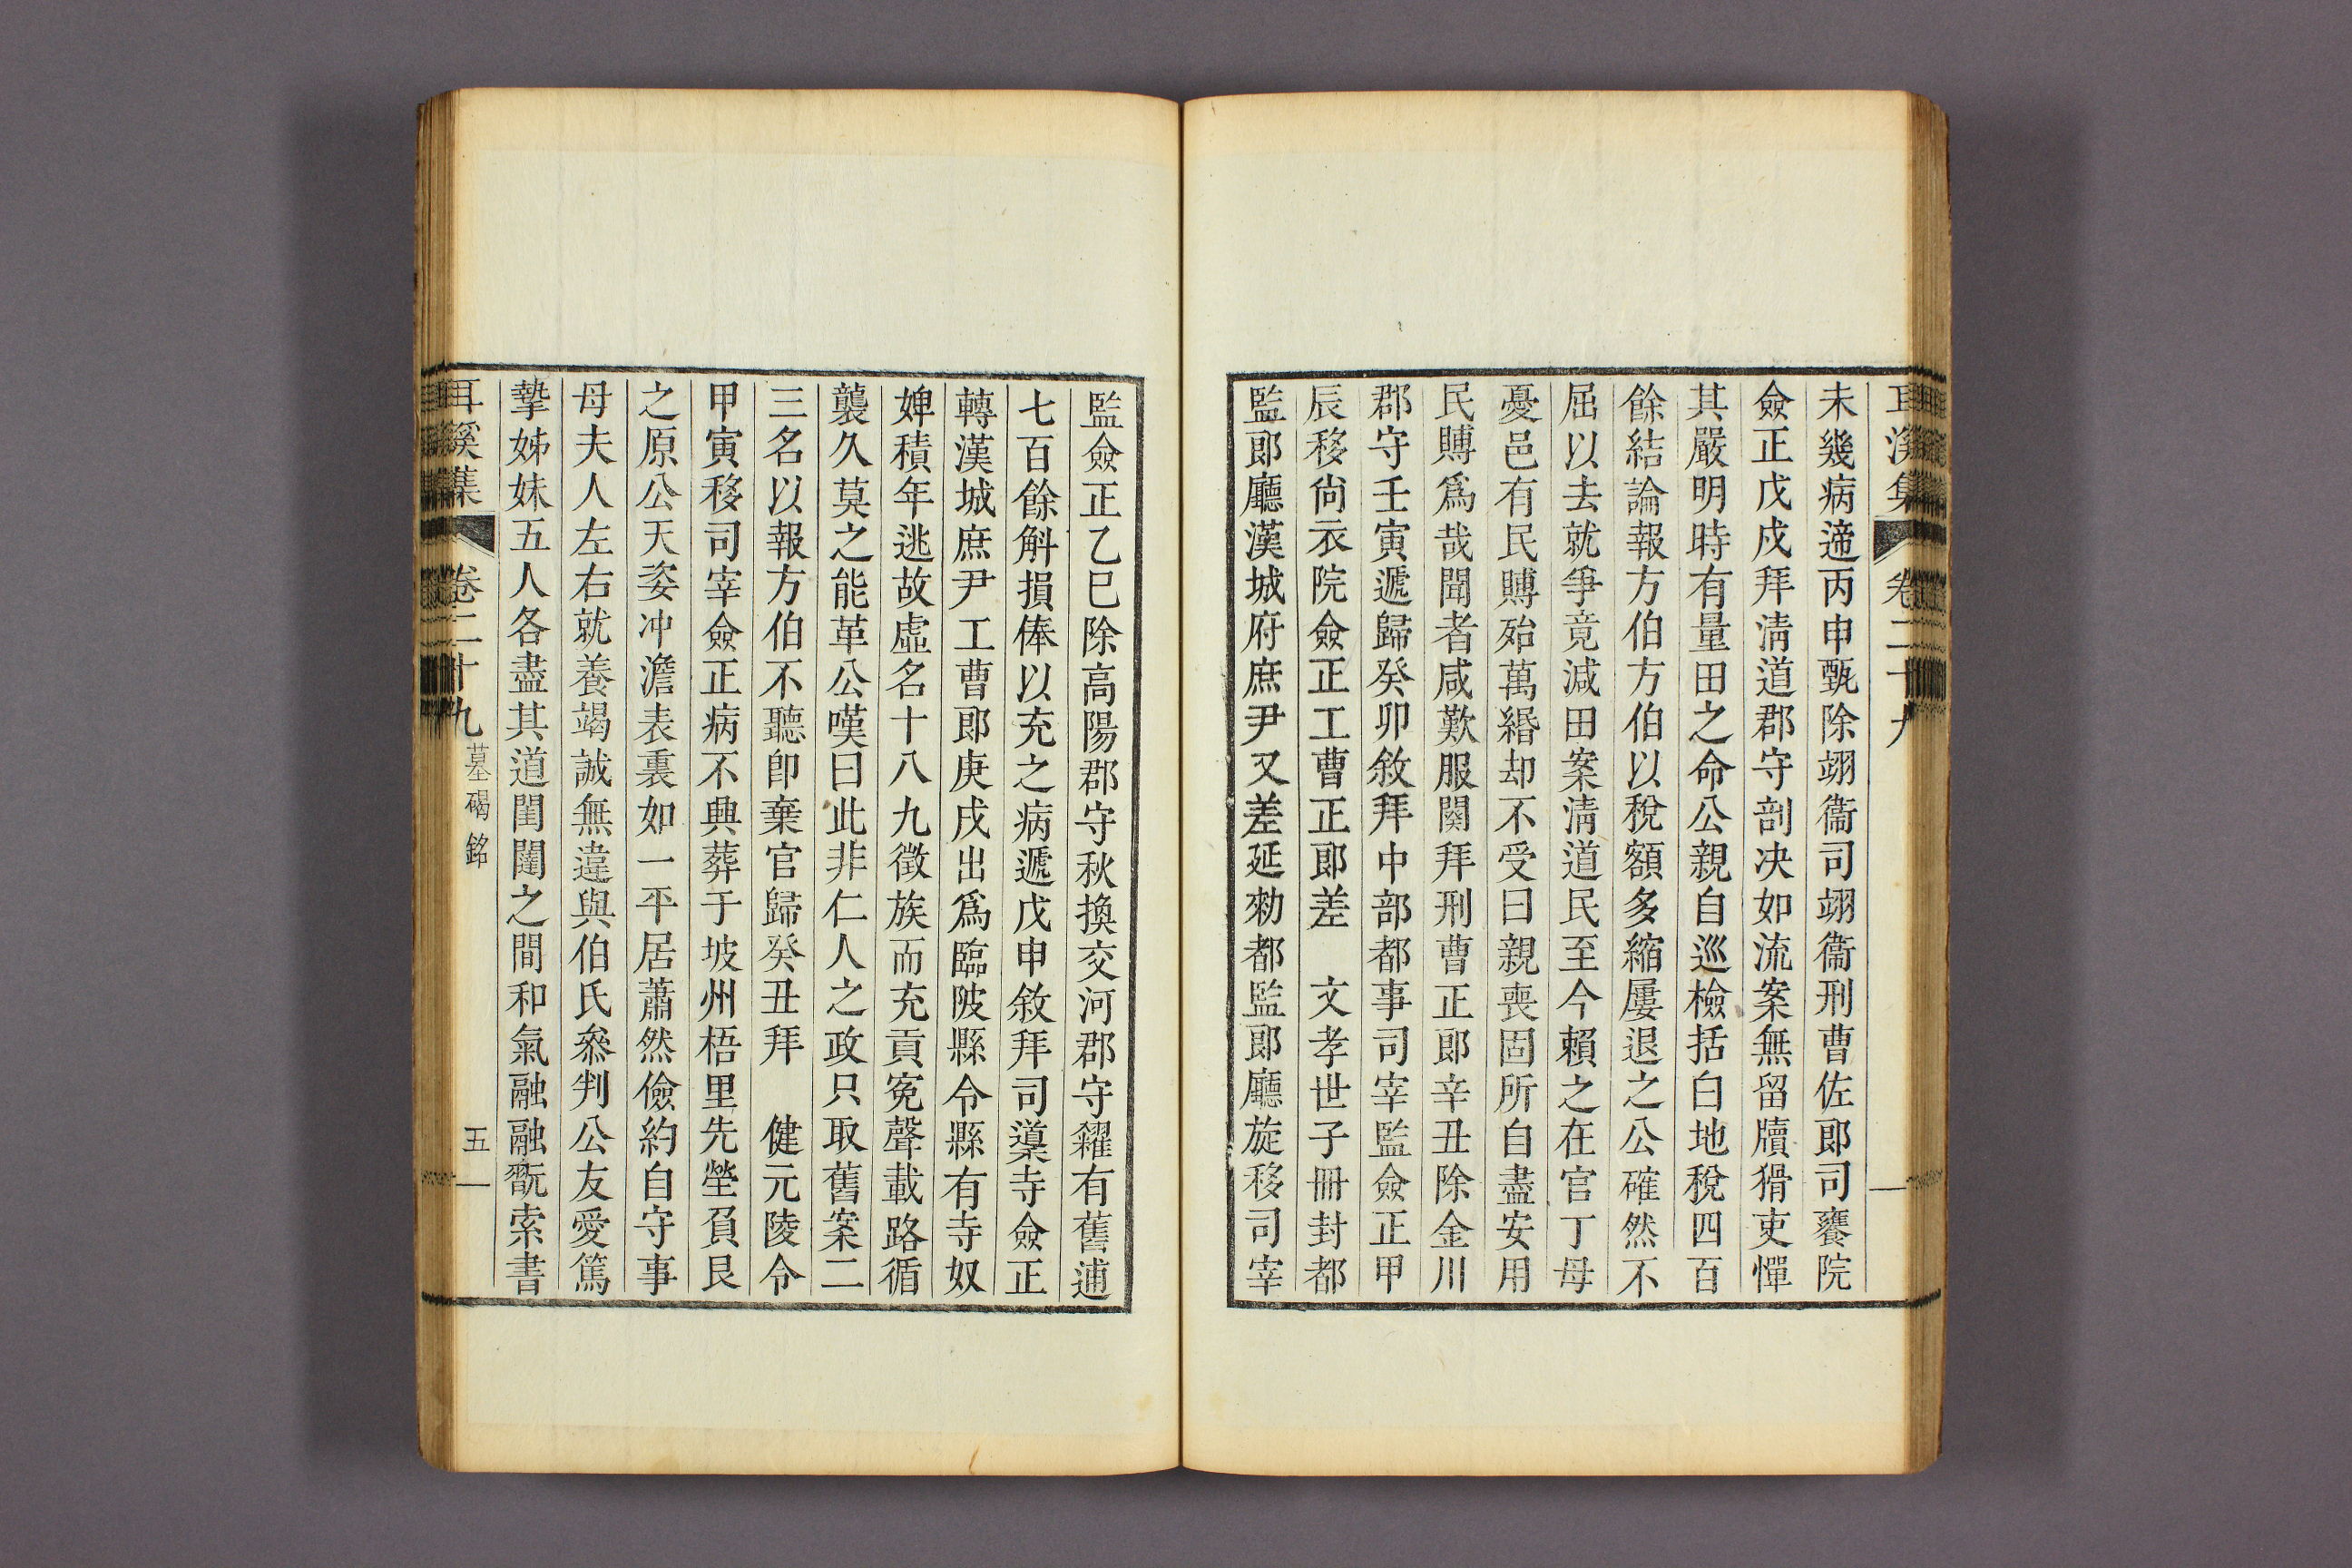 耳溪集 卷二十九
未幾病遞丙申甄除翊衞司翊衞刑曹佐郎司饔院
僉正戊戌拜淸道郡守剖决如流案無留牘猾吏憚
其嚴明時有量田之命公親自巡檢括白地稅四百
餘結論報方伯方伯以稅額多縮屢退之公確然不
屈以去就爭竟减田案淸道民至今賴之在官丁母
憂邑有民賻殆萬緡却不受曰親喪固所自盡安用
民賻爲哉聞者咸歎服闋拜刑曹正郎辛丑除金川
郡守壬寅遞歸癸卯敘拜中部都事司宰監僉正甲
辰移尙衣院僉正工曹正郎差　文孝世子冊封都
監郎廳漢城府庶尹又差延勑都監郎廳旋移司宰
監僉正乙巳除高陽郡守秋換交河郡守糴有舊逋
七百餘斛損俸以充之病遞戊申敘拜司䆃寺僉正
轉漢城庶尹工曹郎庚戌出爲臨陂縣令縣有寺奴
婢積年逃故虛名十八九徵族而充貢寃聲載路循
襲久莫之能革公嘆曰此非仁人之政只取舊案二
三名以報方伯不聽卽棄官歸癸丑拜　健元陵令
甲寅移司宰僉正病不興葬于坡州梧里先塋負艮
之原公天姿冲澹表裏如一平居蕭然儉約自守事
母夫人左右就養竭誠無違與伯氏叅判公友愛篤
摯姊妹五人各盡其道閨闈之間和氣融融翫索書
耳溪集 卷二十九 墓碣銘 五